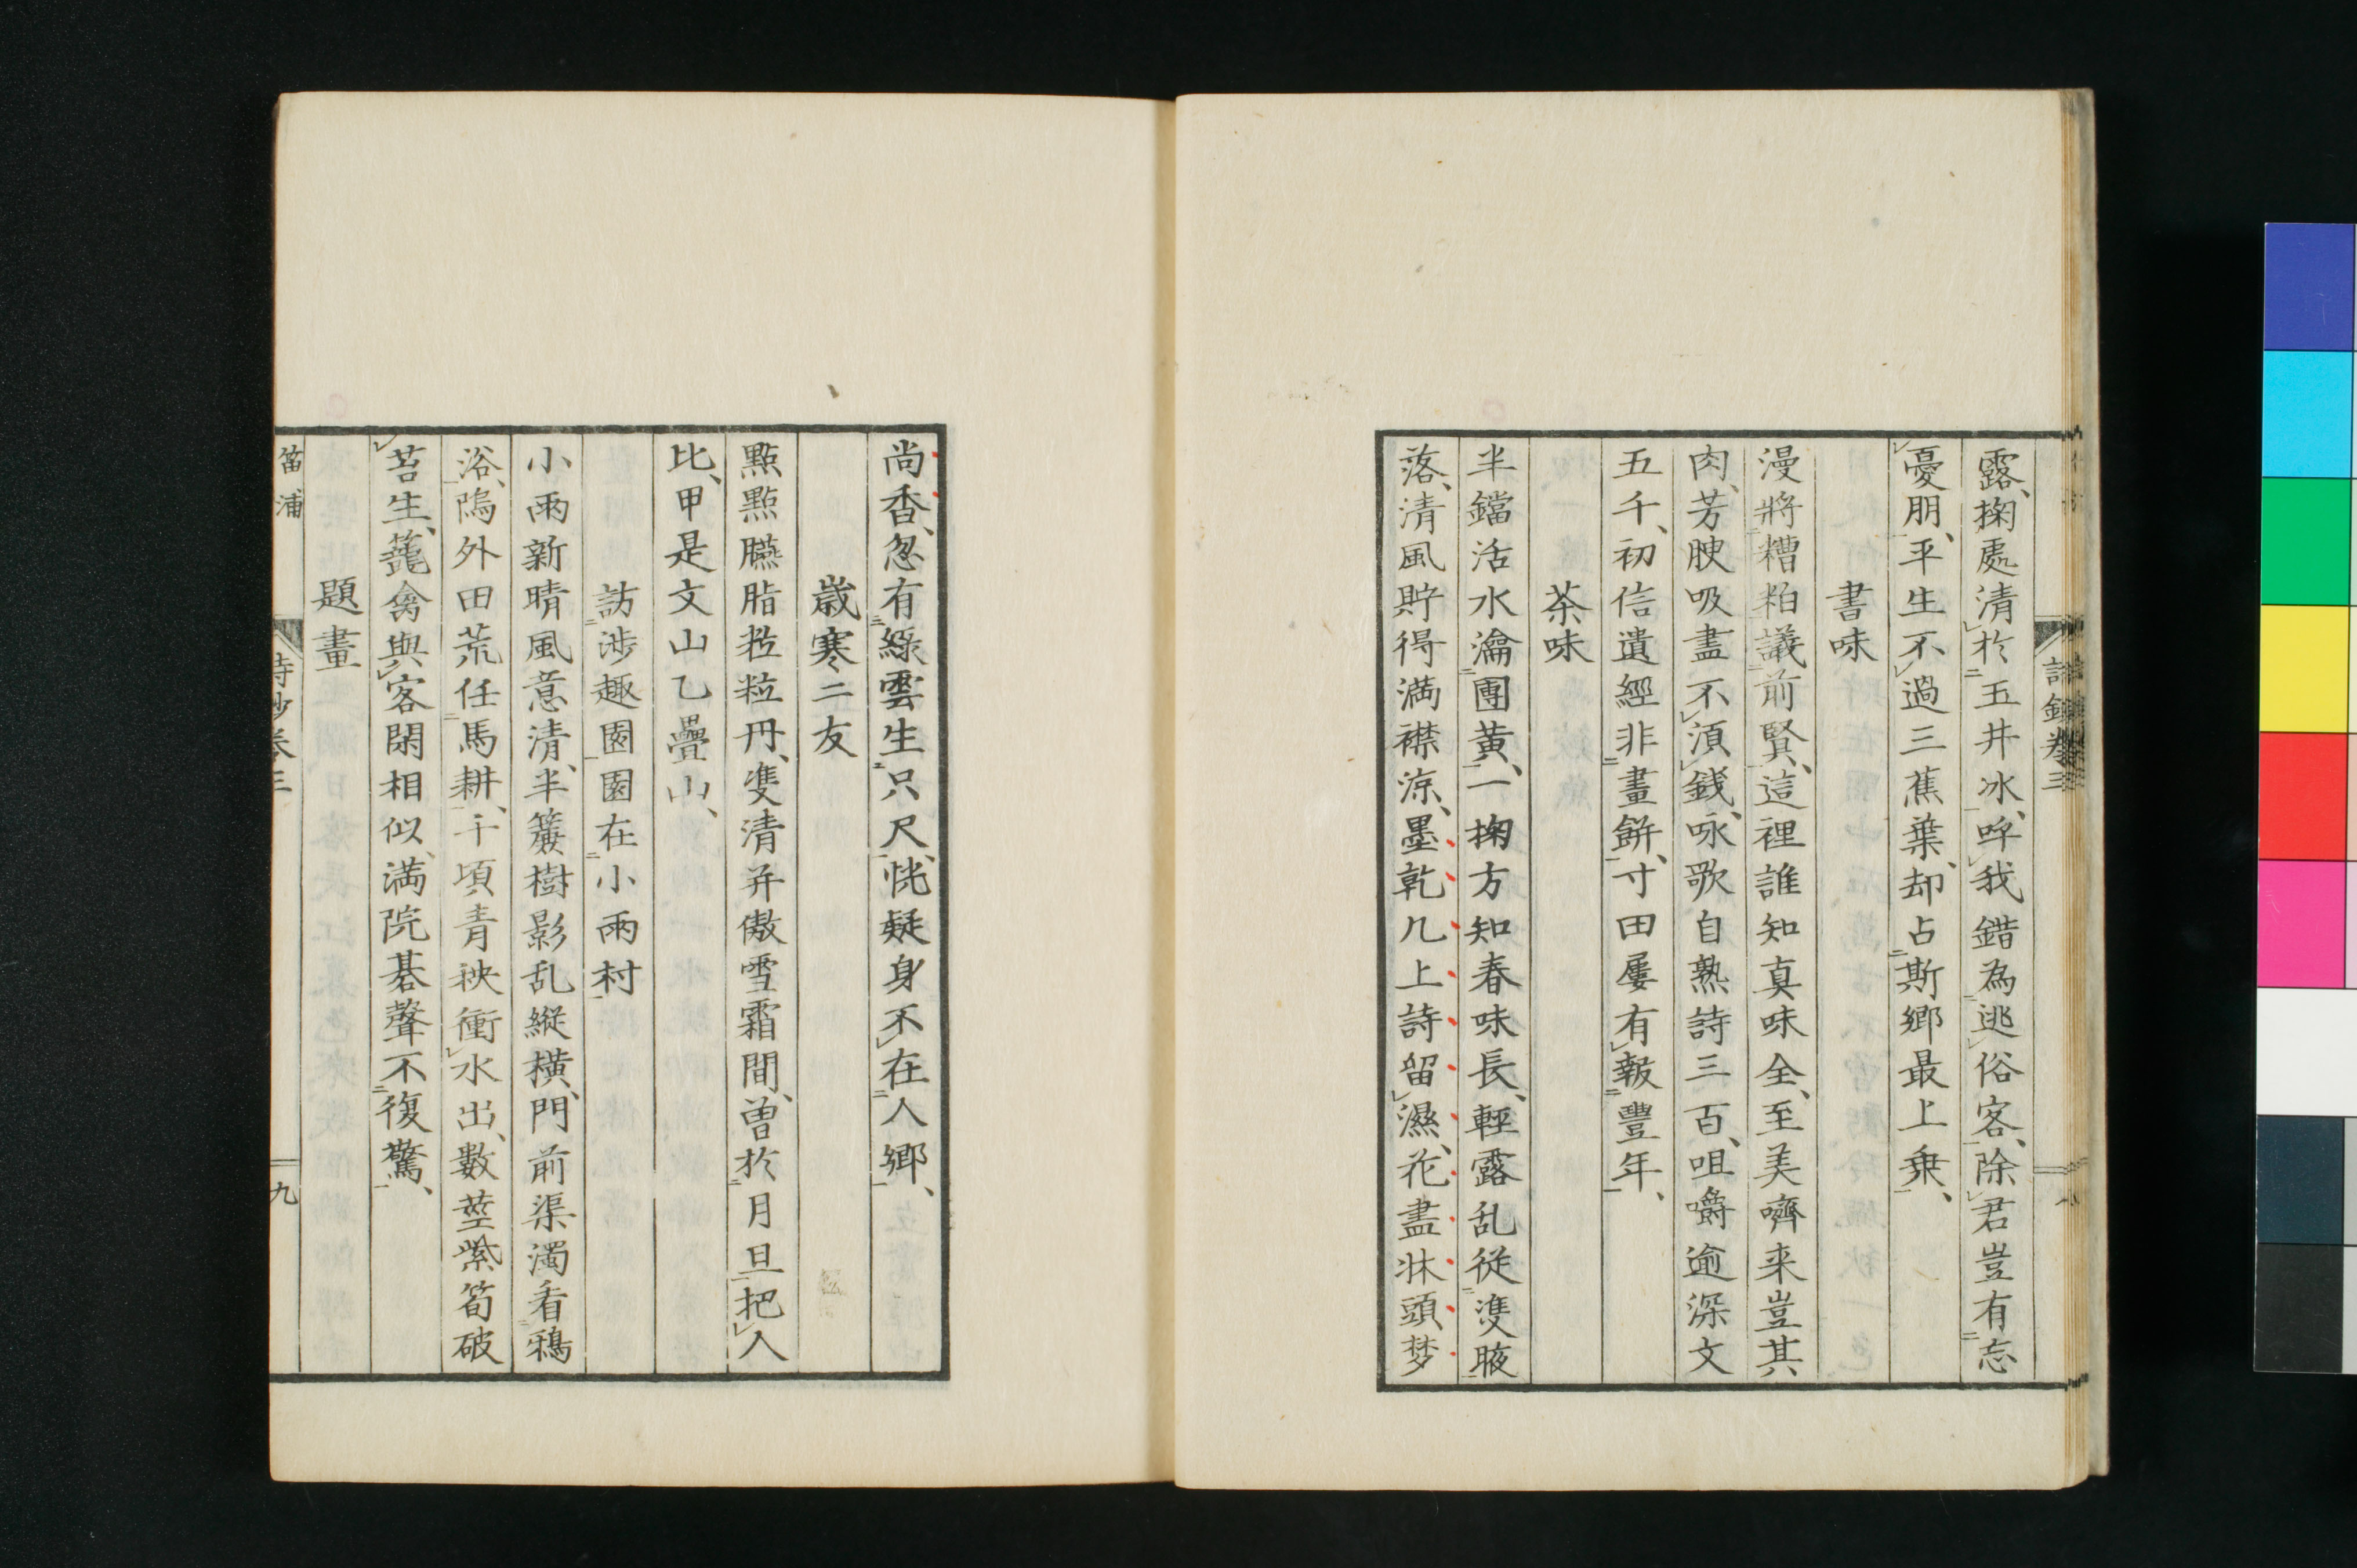 露、掬處清於五井冰、呼我錯為逃俗客、除君豈有忘
憂朋、平生不過三蕉葉、却占斯鄉最上乗、
書味
漫將糟粕議前賢、這裡誰知真味全、至美嚌来豈其
肉、芳腴吸盡不湏錢、咏歌自熟詩三百、咀嚼逾深文
五千、初信遺經非畫餅、寸田屢有報豐年、
茶味
半鐺活水瀹團黄、一掬方知春味長、輕露乱従雙腋
落、清風貯得満襟涼、墨乾几上詩留濕、花盡牀頭梦
詩鈔卷三
八
尚香、忽有綠雲生只尺、恍疑身不在人鄉、
歳寒二友
點點臙脂粒粒丹、雙清并傲雪霜間、曽於月旦把人
比、甲是文山乙疊山、
訪渉趣園園在小雨村
小雨新晴風意清、半簾樹影乱縦横、門前渠濁看鵶
浴、隖外田荒任馬耕、千頃青秧衝水出、數莖紫筍破
苔生、籠禽與客閑相似、満院碁聲不復驚、
題畫
笛浦
詩鈔卷三
九